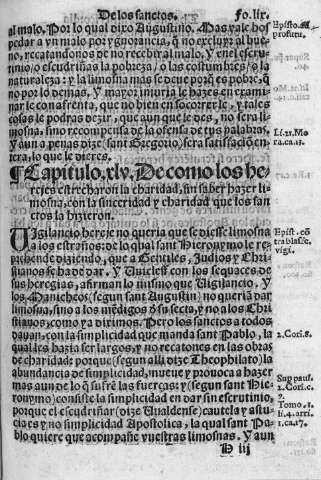 De los sanctos. Fo. lix.
al malo. Por lo qual dize Augustino. Mas vale hos
pedar a vn malo por ygnorancia, q̃ no excluyr al bue
no, recatandonos de no recebir al malo. Y en el escru
tinio, o escudriñas la pobreza, o las costumbres, o la
naturaleza: y la limosna mas se deue porq̃ es pobre, q̃
no por de buenos. Y mayor injuria le hazes en examinar
le con afrenta, que no bien en socorrerle, y tales
cosas le podras dezir, que aun que le des, no sera li
mosna, sino recompensa de la ofensa de tus palabras,
Y aun a penas dize (sant Gregorio) sera satisfaciõ en
tera, lo que le dieres.
Episto. ad
prosutu.
Li. 21. Mo
ra. ca. 13.
¶ Capitulo. xlv. De como los he
rejes estrecharon la charidad, sin saber hazer li
mosna, con la sinceridad y charidad que los san
ctos la hizieron.
Uigilancio hereje no queria que se diesse limosna
a los estraños: de lo qual sant Hieronymo le re
prehende diziendo, que a Gentiles, Judios y Chri
stianos se ha de dar. Y Uuicleff con los sequaces de
sus heregias, afirman lo mismo que Uigilancio, Y
los Manicheos (segun sant Augustin) no querian dar
limosna, sino a los mẽdigos d̃ su secta, y no a los Chri
stianos, como ya diximos. Pero los sanctos a todos
dauan, con la simplicidad que manda sant Pablo, la
qual les hazia ser largos, y no recatones en las obras
de charidad: porque (segun alli dize Theophilato) la
abundancia de simplicidad, mueue y prouoca a hazer
mas aun de lo q̃ sufrẽ las fuerças: y (segun sant Hie
ronymo) consiste la simplicidad en dar sin escrutinio,
porque el escudriñar (dize Uualdense) cautela y astu
cia es y no simplicidad Apostolica, la qual sant Pa
blo quiere que acompañe vuestras limosnas. Y aun
Epist. cõ
tra blasfe.
vigi.
2. Cori. 8.
Sup paul.
2. Cori. c.
9.
Tomo. 1.
li. 4. arti.
1. ca. 17.
H iij